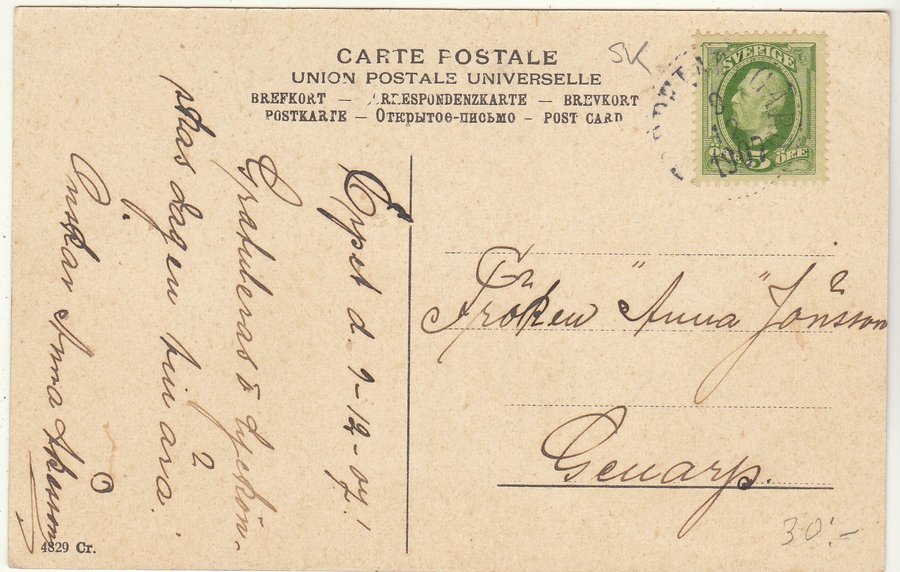 CARTE POSTALE
UNION POSTALE UNIVERSELLE
BREFKORT — ORRESPONDENZKARTE — BREVKORT
POSTKARTE — Открытое-письмо — POST CARD
SVERIGE
5
ÖRE
1907
SK
d. 9-12-07!
Gratuleras ö lyckön-
skas dagen till ära.
önskar Anna Åkesson
Fröken "Anna" Jönsson
Genarp.
30:-
4829 Cr.